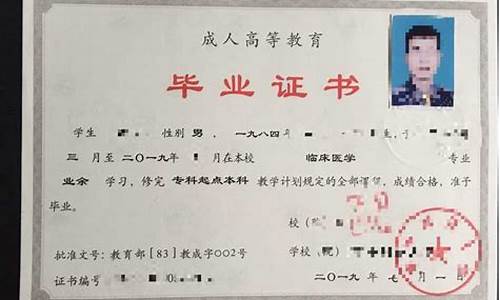 成人高等教育
毕业证书
学生 性别 男， 一九八四年
三 月至 二〇一九年 月在本校 临床医学 专业
业余 学习，修完 专科起点本科 教学计划规定的全部课程，成绩合格，准予
毕业。
校（院
批准文号：教育部［83］教成字002号 学校（院）
证书编号 二〇一九年 七 月 一 日